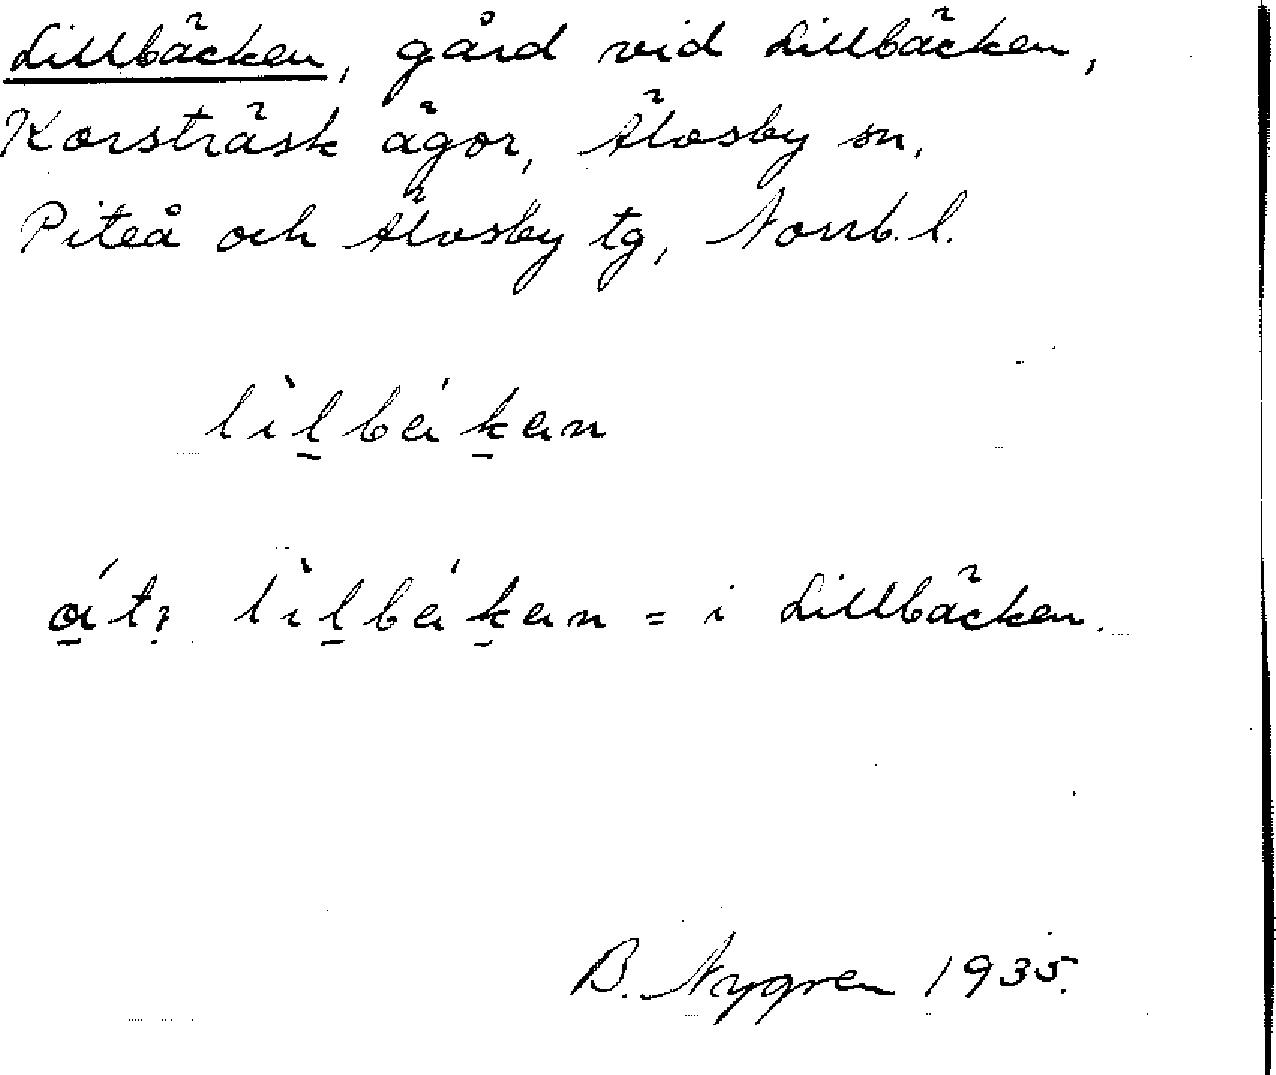 Lillbäcken, gård vid Lillbäcken,
Korsträsk ägor, Älvsby sn,
Piteå och Älvsby tg, Norrb. l.
lìl̠bá̈k̠än
= i Lillbäcken.
B. Nygren 1935.